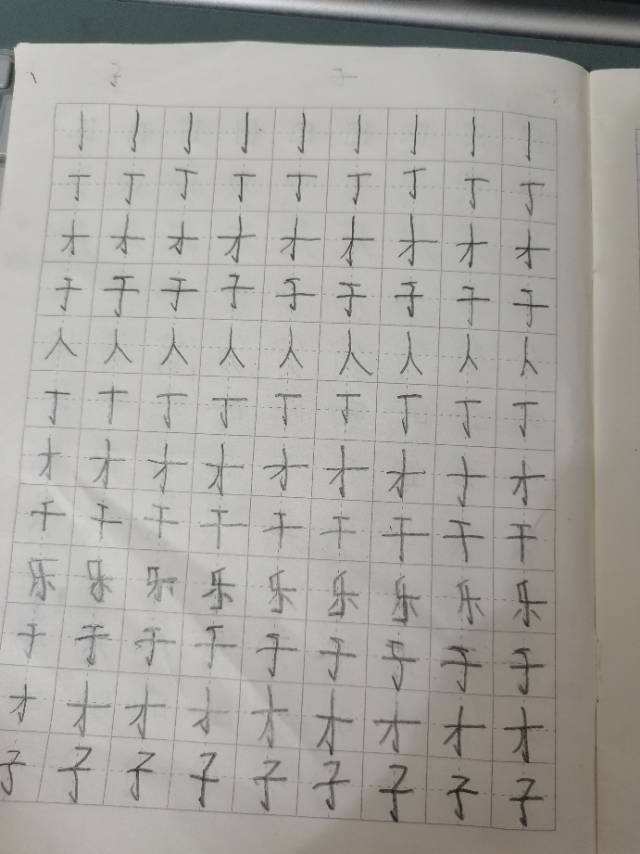 亅亅亅亅亅亅亅亅亅
丁丁丁丁丁丁丁丁丁
才才才才才才才才才
于于于于于于于于于
人人人人人人人人人
丁丁丁丁丁丁丁丁丁
才才才才才才才才才
干干干干干干干干干
乐乐乐乐乐乐乐乐乐
于于于于于于于于于
才才才才才才才才才
子子子子子子子子子